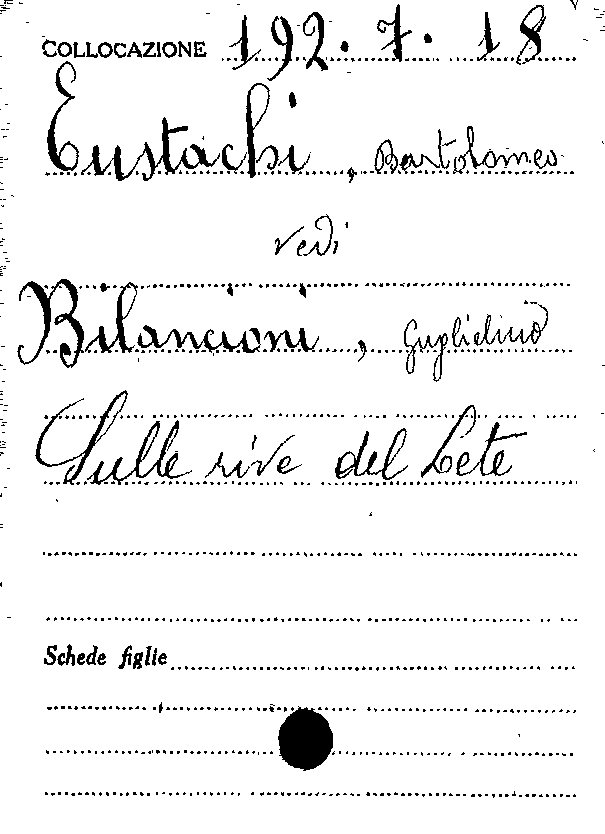 COLLOCAZIONE 192. 7. 18
Eustachi, Bartolomeo
vedi
Bilancioni, Guglielmo
Sulle rive del Lete
Schede figlie